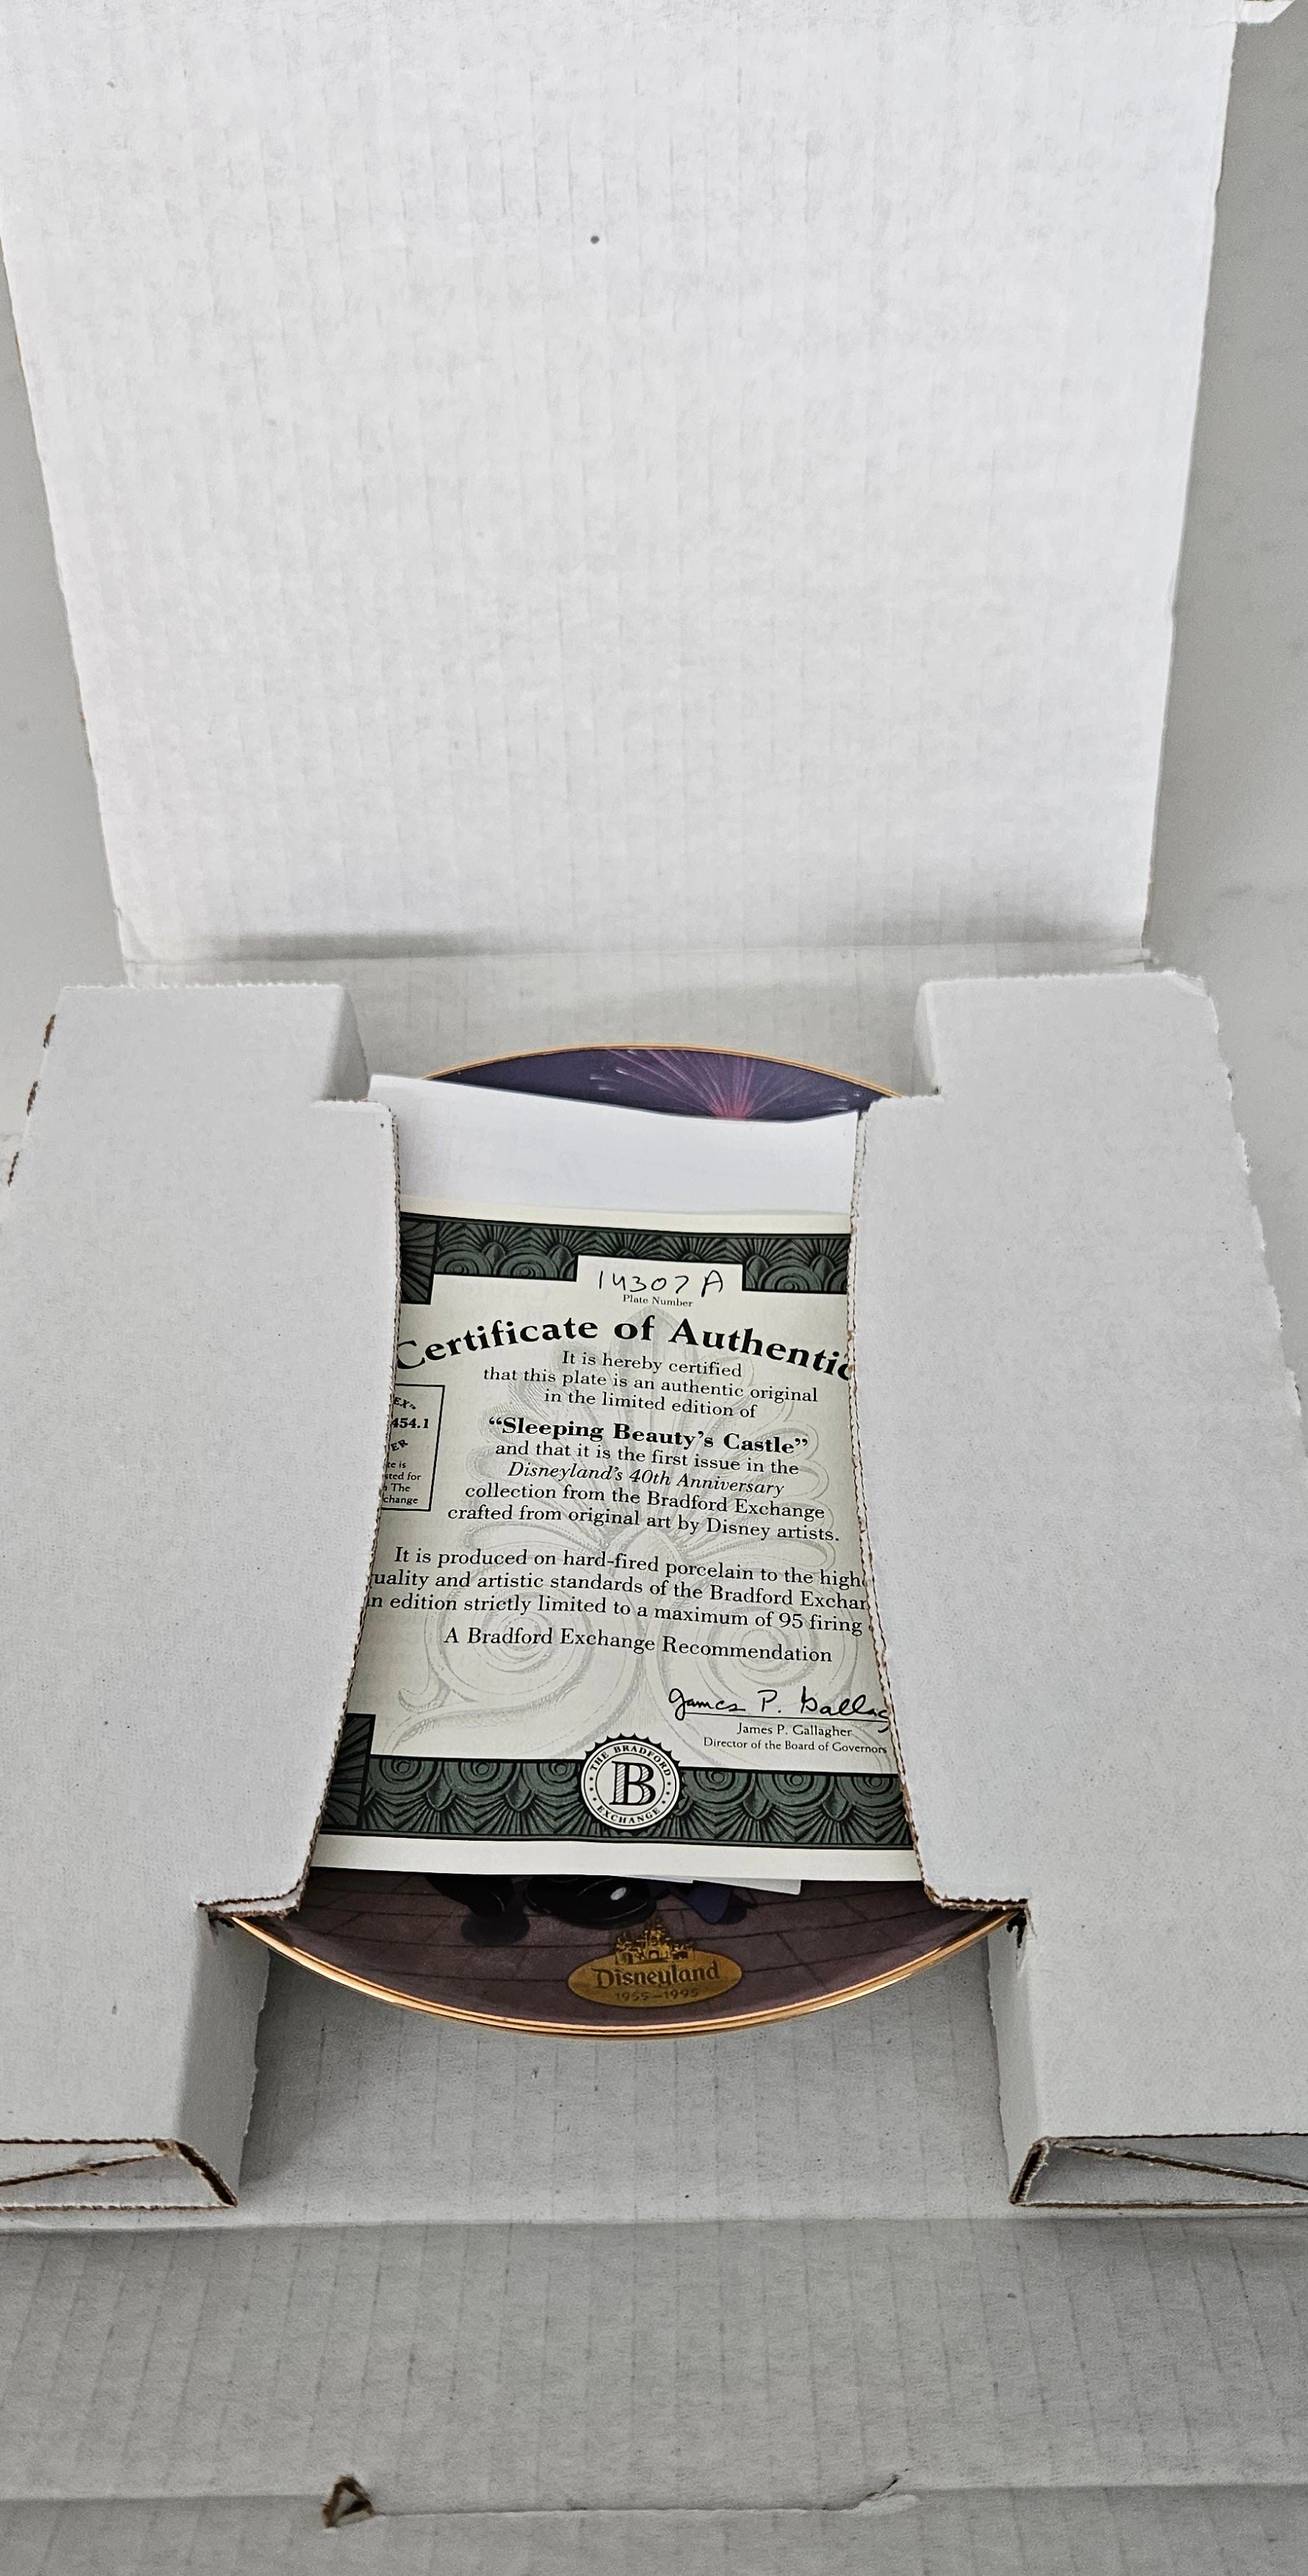 14307A
Plate Number
Certificate of Authentic
It is hereby certified
that this plate is an authentic original
in the limited edition of
“Sleeping Beauty’s Castle”
and that it is the first issue in the
Disneyland’s 40th Anniversary
collection from the Bradford Exchange
crafted from original art by Disney artists.
It is produced on hard-fired porcelain to the high
uality and artistic standards of the Bradford Exchan
n edition strictly limited to a maximum of 95 firing
A Bradford Exchange Recommendation
EX.
454.1
ER
te is
sted for
The
change
James P. Gallag
James P. Gallagher
Director of the Board of Governors
THE BRADFORD
B
EXCHANGE
Disneyland
1955–1995